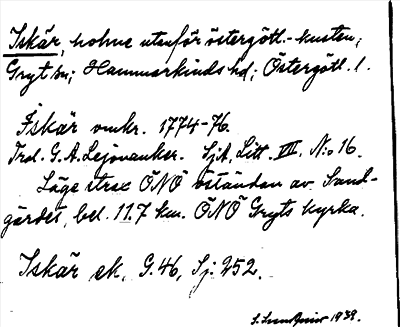 Iskär, holme utanför östergötl.-kusten;
Gryt sn; Hammarkinds hd; Östergötl. l.
Iskär omkr. 1774-76.
Trol. G. A. Lejonanker. SjA, Litt. VII. N:o 16.
Läge strax ÖNÖ öständan av Sand-
gärdet, bel. 11.7 km. ÖNÖ Gryts kyrka.
Iskär ek, G. 46, Sj: 252.
1938.